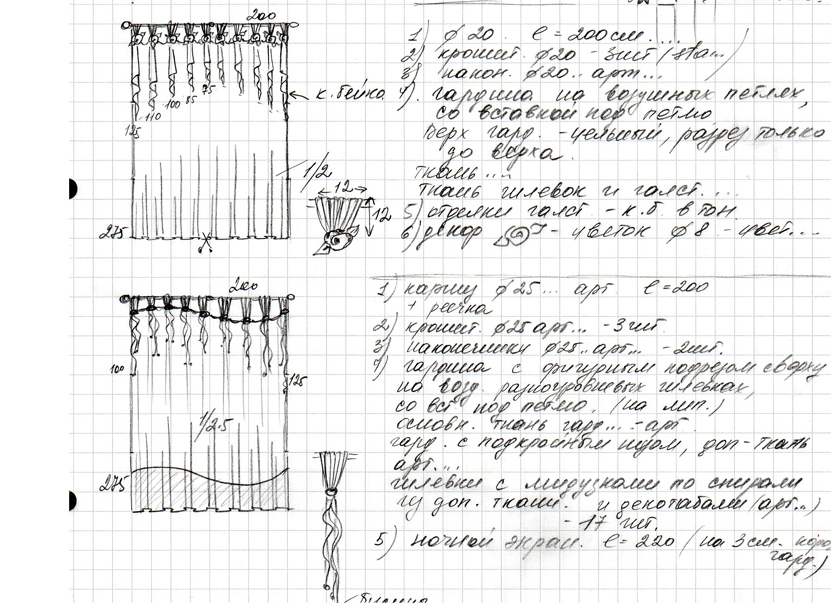 200
1) ф 20. l = 200 см. ...
2) кроншт. ф20 - 3шт (
3) након. ф20.. арт...
к. бейка
4). гардина на воздушных петлях,
со вставкой под петлю
Верх гард. - цельный, разрез только
до верха.
125 110 100 85 75
ткань ...
1/2
ткань шлевок и галст. ...
12
12
5) отделки галст - к.б. в тон
275
6) декор - цветок ф 8. - цвет....
200
1) карниз ф 25... арт. l = 200
+ реечка
2) кроншт. ф25 арт... - 3 шт.
3) наконечники ф25.. арт... - 2шт.
4) гардина с фигурным подрезом сверху
100
125
на возд. разноуровневых шлевках,
со вст под петлю. (на лип.)
1/2.5
основн. ткань гард... - арт
гард. с подкройным низом, доп-ткань
арт...
275
шлевки с по спирали
из доп. ткани. и (арт..)
- 17 шт.
5) ночной экран. l = 220 (на 3 см.
гард.)